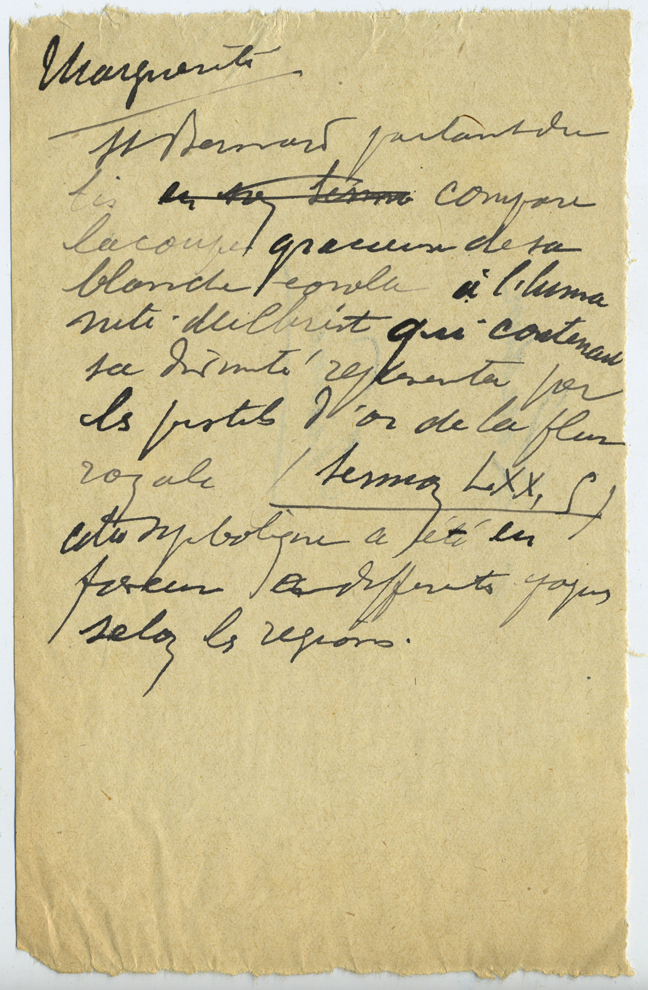 Marguerite
St Bernard partant du
lis en son sermo compare
la coupe gracieuse de sa
blanche corolle à l'huma
nité du Christ qui contenait
sa divinité représentée par
les pistils d'or de la fleur
royale (sermon LXX, 5)
cette symbolique a été en
faveur à différentes
selon les régions.